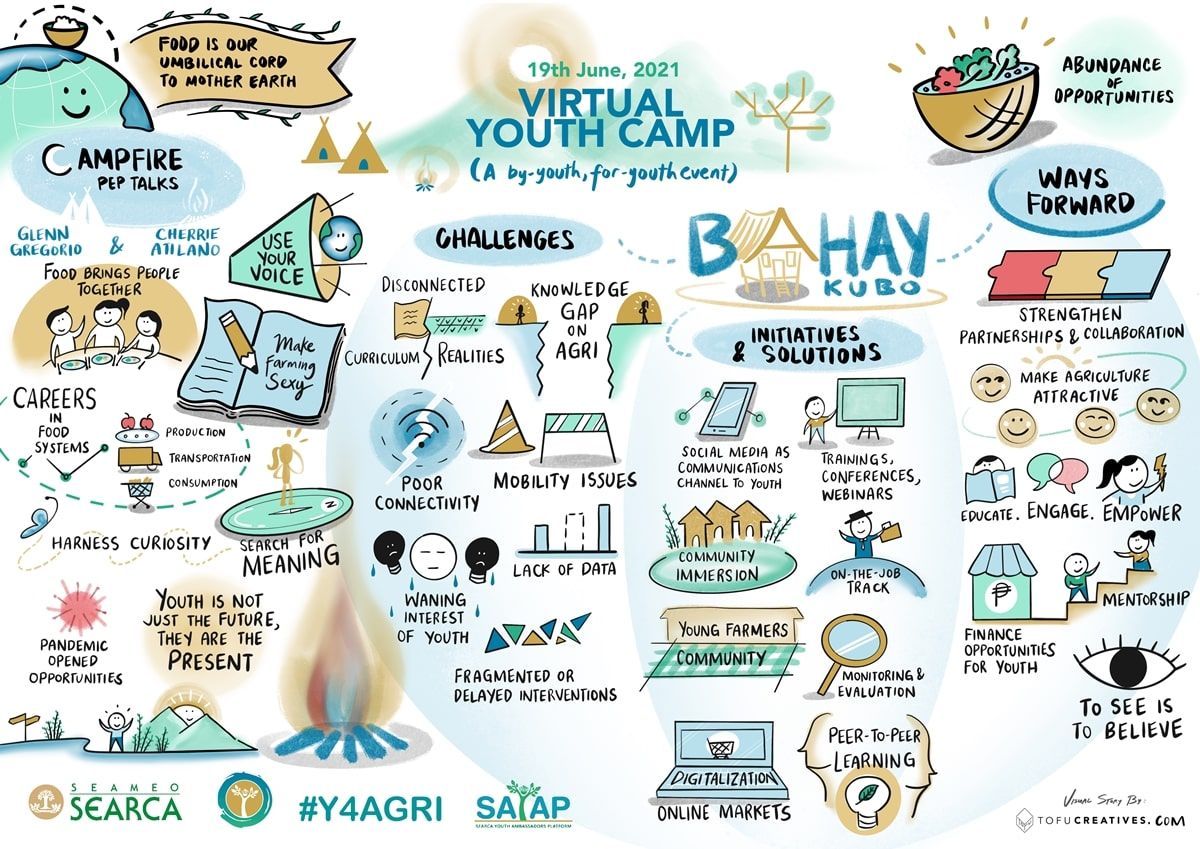 FOOD IS OUR
UMBILICAL CORD
TO MOTHER EARTH
19th June, 2021
VIRTUAL
YOUTH CAMP
(A by-youth, for-youth event)
ABUNDANCE
OF
OPPORTUNITIES
CAMPFIRE
PEP TALKS
GLENN
GREGORIO
&
CHERRIE
ATILANO
USE
YOUR
VOICE
FOOD BRINGS PEOPLE
TOGETHER
Make
Farming
Sexy
CAREERS
IN
FOOD
SYSTEMS
PRODUCTION
TRANSPORTATION
CONSUMPTION
HARNESS CURIOSITY
N
SEARCH FOR
MEANING
PANDEMIC
OPENED
OPPORTUNITIES
YOUTH IS NOT
JUST THE FUTURE,
THEY ARE THE
PRESENT
CHALLENGES
DISCONNECTED
CURRICULUM
REALITIES
KNOWLEDGE
GAP
ON
AGRI
POOR
CONNECTIVITY
MOBILITY ISSUES
WANING
INTEREST
OF YOUTH
LACK OF DATA
FRAGMENTED OR
DELAYED INTERVENTIONS
BAHAY
KUBO
INITIATIVES
& SOLUTIONS
SOCIAL MEDIA AS
COMMUNICATIONS
CHANNEL TO YOUTH
TRAININGS,
CONFERENCES,
WEBINARS
COMMUNITY
IMMERSION
ON-THE-JOB
TRACK
YOUNG FARMERS
COMMUNITY
MONITORING &
EVALUATION
DIGITALIZATION
ONLINE MARKETS
PEER-TO-PEER
LEARNING
WAYS
FORWARD
STRENGTHEN
PARTNERSHIPS & COLLABORATION
MAKE AGRICULTURE
ATTRACTIVE
EDUCATE. ENGAGE. EMPOWER
₱
FINANCE
OPPORTUNITIES
FOR YOUTH
MENTORSHIP
TO SEE IS
TO BELIEVE
SEAMEO
SEARCA
#Y4AGRI
SAYAP
SEARCA YOUTH AMBASSADORS PLATFORM
VISUAL STORY BY:
TOFUCREATIVES.COM